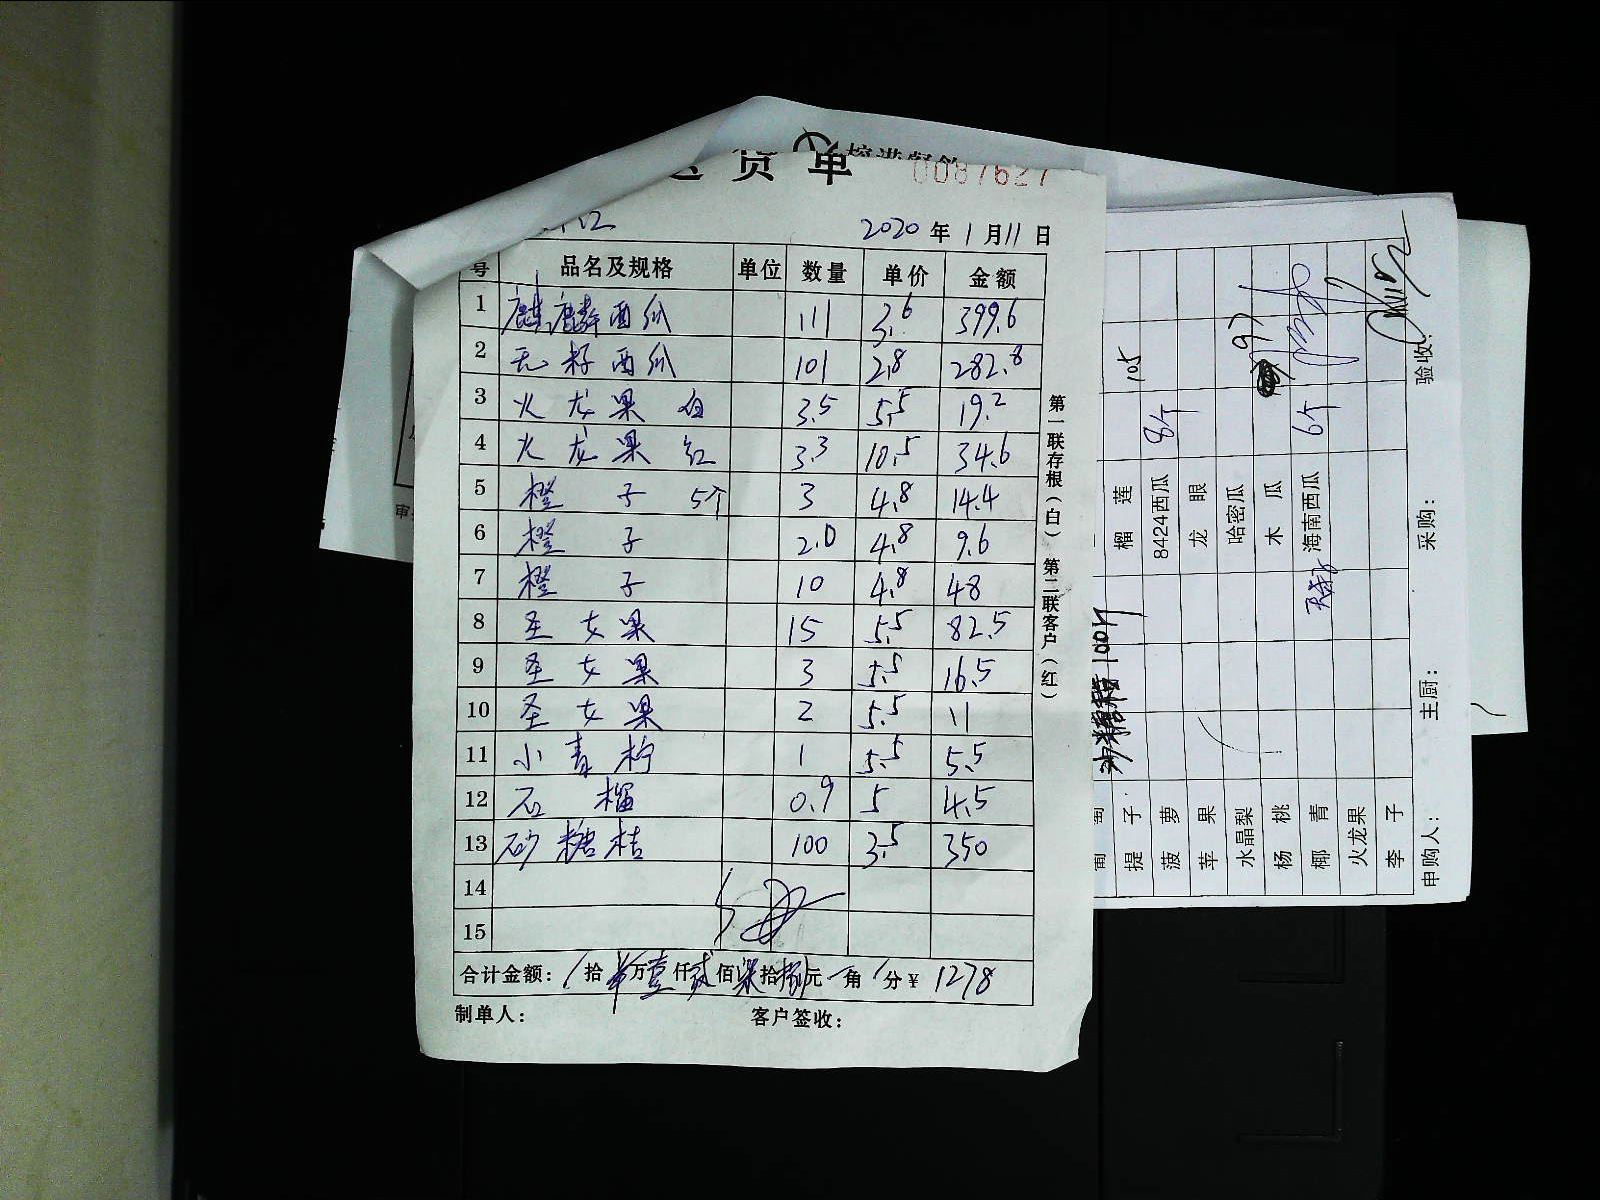 送货单 0087627
2020年1月11日
号 品名及规格 单位 数量 单价 金额
1 麒麟西瓜 111 3.6 399.6
2 无籽西瓜 101 2.8 282.8
3 火龙果 白 3.5 5.5 19.2
4 火龙果 红 3.3 10.5 34.6
5 橙子 5个 3 4.8 14.4
6 橙子 2.0 4.8 9.6
7 橙子 10 4.8 48
8 圣女果 15 5.5 82.5
9 圣女果 3 5.5 16.5
10 圣女果 2 5.5 11
11 小青柠 1 5.5 5.5
12 石榴 0.9 5 4.5
13 砂糖桔 100 3.5 350
14
15
合计金额: 拾 万壹仟贰佰柒拾捌元 角 分 ¥ 1278
制单人: 客户签收:
第一联存根(白) 第二联客户(红)
葡萄
提子 榴莲 105
菠萝 8424西瓜 8个
苹果 龙眼
水晶梨 哈密瓜 97
杨桃 木瓜
椰青 海南西瓜 6个
火龙果
李子
砂糖桔100斤
申购人: 主厨: 采购: 验收: